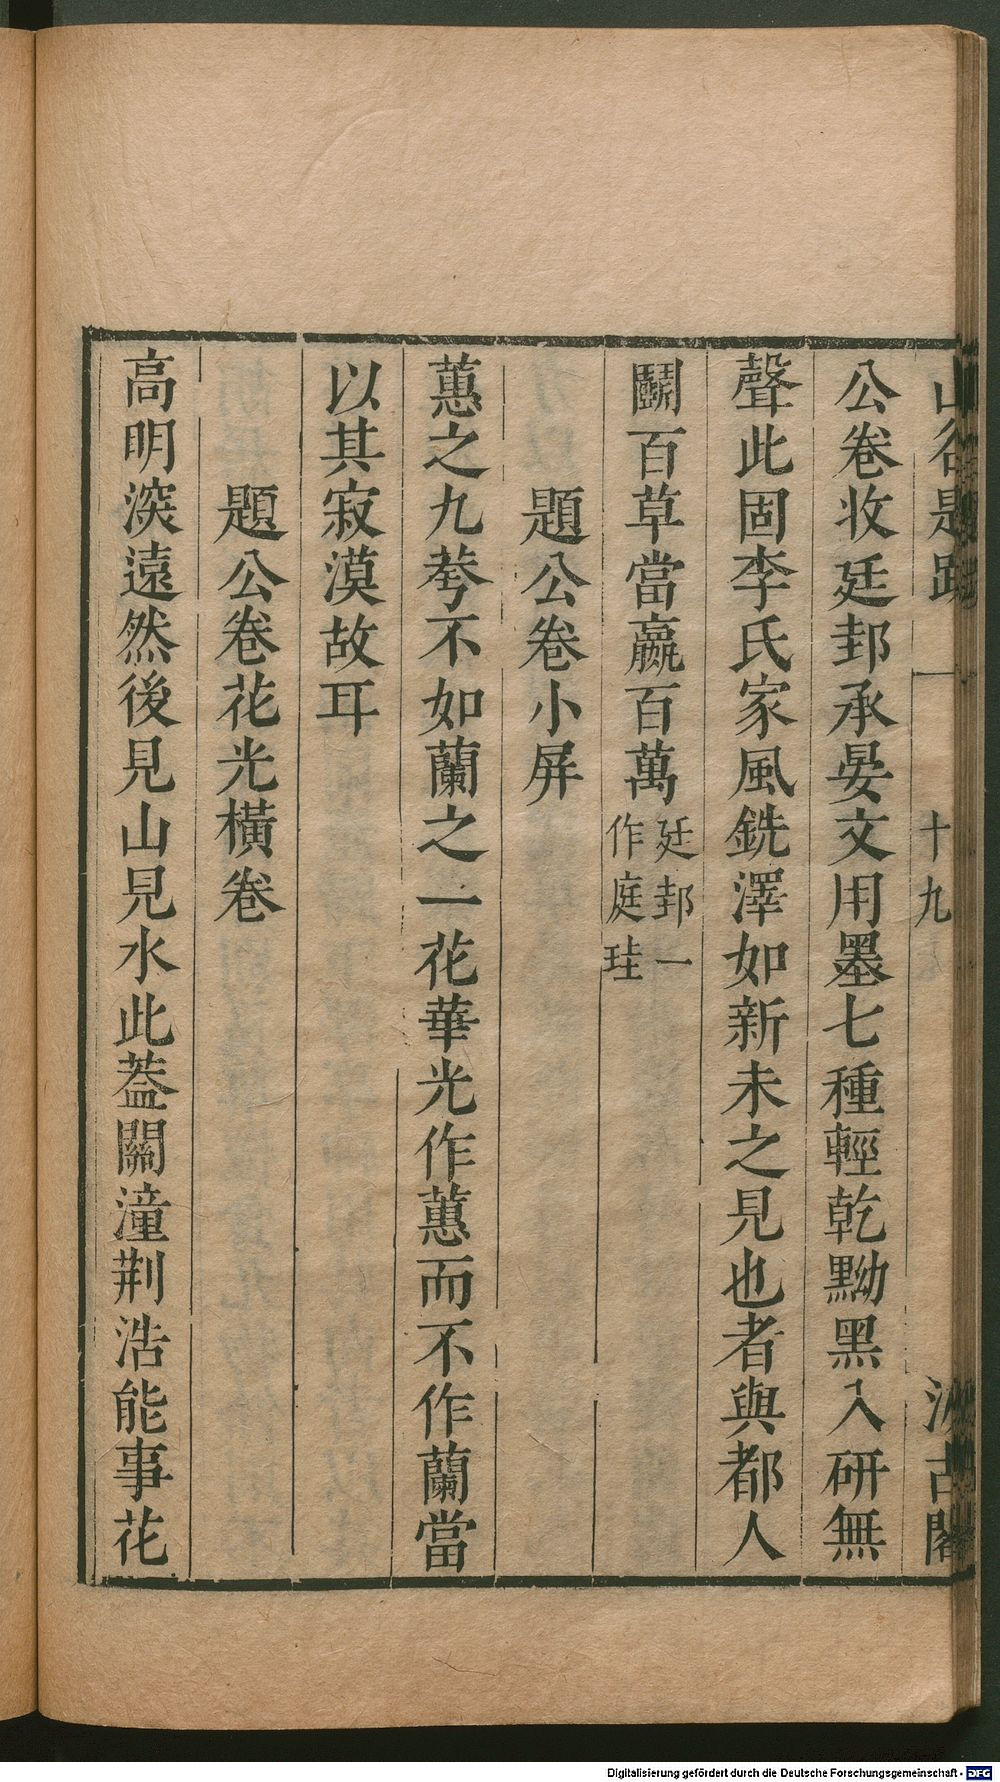 山谷題跋 一 十九 汲古閣
公卷收廷邽承晏文用墨七種輕乾黝黑入研無
聲此固李氏家風銑澤如新未之見也者與都人
鬭百草當贏百萬廷邽一作庭珪
題公卷小屏
蕙之九蕚不如蘭之一花華光作蕙而不作蘭當
以其寂漠故耳
題公卷花光橫卷
高明深遠然後見山見水此葢關潼荆浩能事花
Digitalisierung gefördert durch die Deutsche Forschungsgemeinschaft - DFG